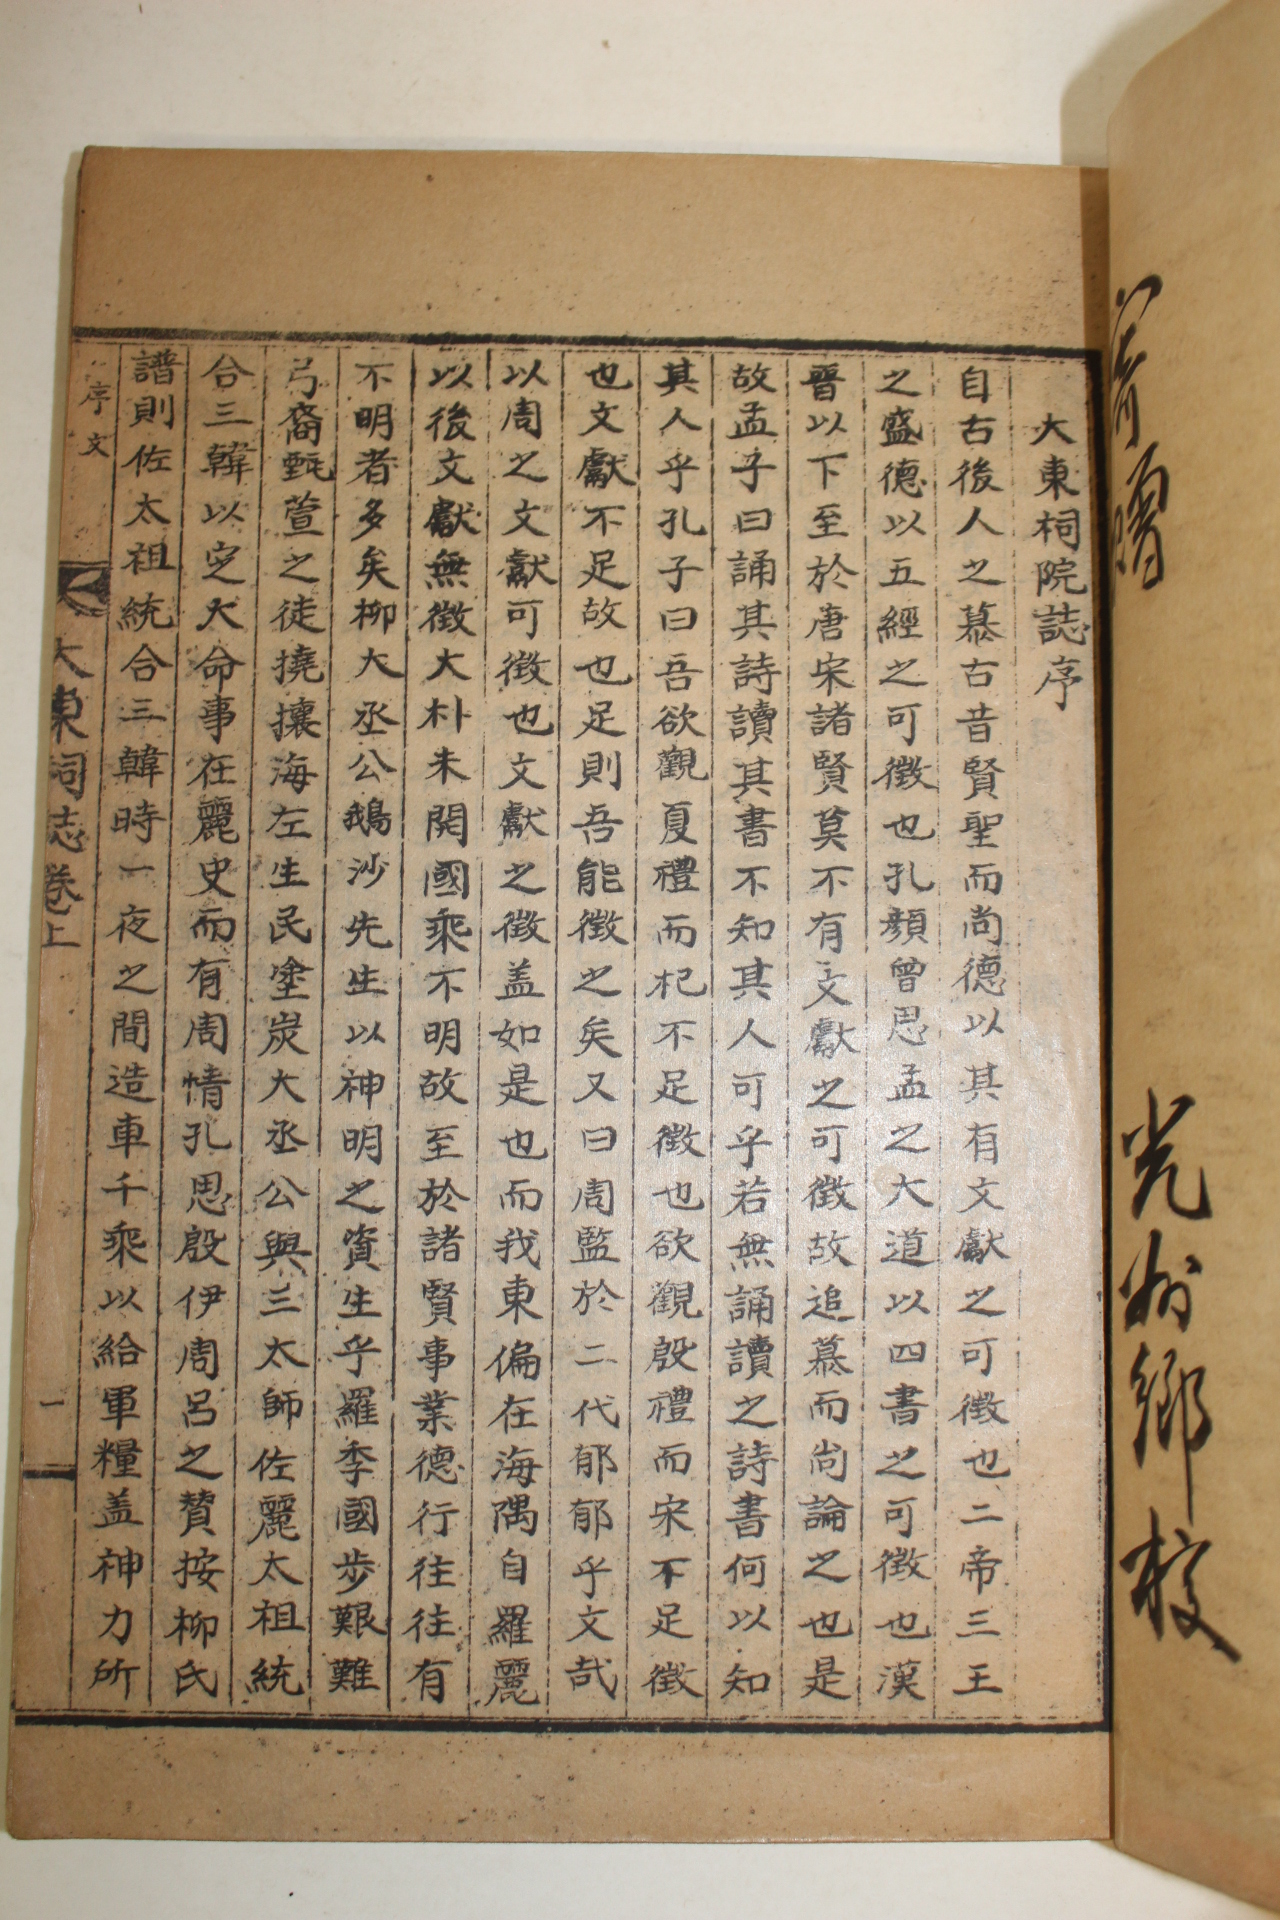 光州鄉校
大東祠院誌序
自古後人之慕古昔賢聖而尚德以其有文獻之可徵也二帝三王
之盛德以五經之可徵也孔顏曾思孟之大道以四書之可徵也漢
晉以下至於唐宋諸賢莫不有文獻之可徵故追慕而尙論之也是
故孟子曰誦其詩讀其書不知其人可乎若無誦讀之詩書何以知
其人乎孔子曰吾欲觀夏禮而杞不足徵也欲觀殷禮而宋不足徵
也文獻不足故也足則吾能徵之矣又曰周監於二代郁郁乎文哉
以周之文獻可徵也文獻之徵盖如是也而我東偏在海隅自羅麗
以後文獻無徵大朴未開國乘不明故至於諸賢事業德行往往有
不明者多矣柳大丞公鵝沙先生以神明之資生乎羅季國步艱難
弓裔甄萱之徒撓攘海左生民塗炭大丞公與三太師佐麗太祖統
合三韓以定大命事在麗史而有周情孔思殷伊周呂之贊按柳氏
譜則佐太祖統合三韓時一夜之間造車千乘以給軍糧盖神力所
序文
大東祠誌卷上
一